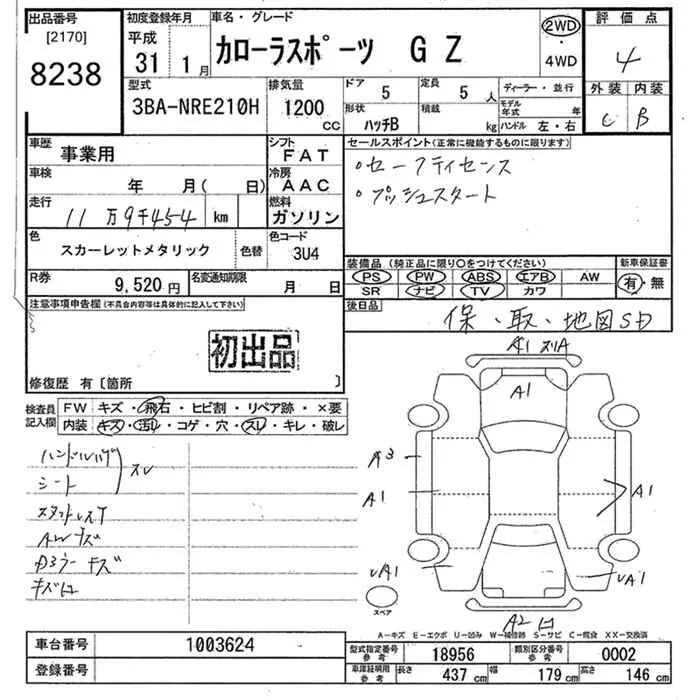 出品番号
[2170]
8238
初度登録年月
平成
31年 1月
車名・グレード
カローラスポーツ GZ
2WD
・
4WD
評価点
4
外装 内装
C B
型式
3BA-NRE210H
排気量
1200
CC
ドア
5
定員
5人
形状
ハッチB
積載
kg
ディーラー・並行
モデル年式 年
ハンドル 左・右
車歴
事業用
シフト
FAT
車検
年 月( 日)
冷房
AAC
走行
11万9千454 km
燃料
ガソリン
色
スカーレットメタリック
色替
色コード
3U4
R券
9,520円
名変通知期限
月 日
セールスポイント(正常に機能するものに限ります)
・セーフティセンス
・プッシュスタート
装備品(純正品に限り○をつけてください)
PS PW ABS エアB AW
SR ナビ TV カワ
新車保証書
有・無
後日品
保・取・地図SD
注意事項申告欄(不具合内容等は具体的に記入して下さい)
初出品
修復歴 有〔箇所 〕
検査員
記入欄
FW キズ・飛石・ヒビ割・リペア跡・×要
内装 キズ・汚レ・コゲ・穴・スレ・キレ・破レ
シート
スレ
AWキズ
キズ
A1 スリA
A1
A3
A1
A1
A1
A1
A2
スペア
A-キズ E-エクボ U-凹み W-補修跡 S-サビ C-腐食 XX-交換済
車台番号
1003624
登録番号
型式指定番号
参考
18956
類別区分番号
参考
0002
車庫証明用
参考
長さ
437cm
幅
179cm
高さ
146cm